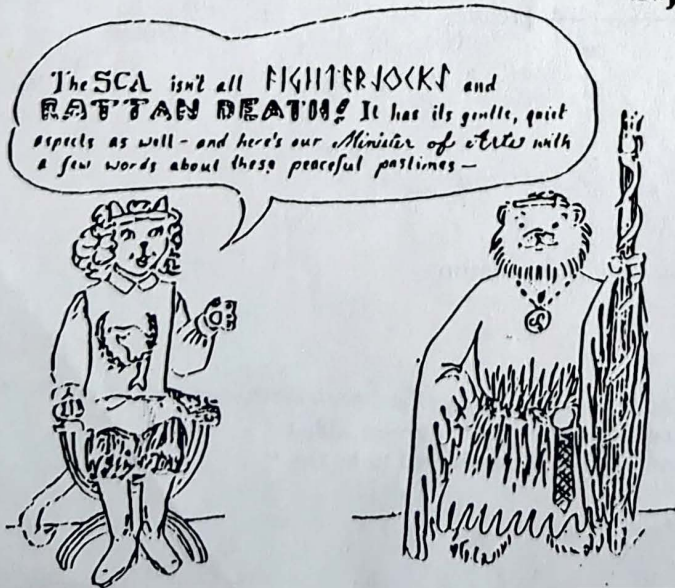 The SCA isn't all FIGHTERJOCKS and
RATTAN DEATH! It has its gentle, quiet
aspects as well - and here's our Minister of Arts with
a few words about these peaceful pastimes —